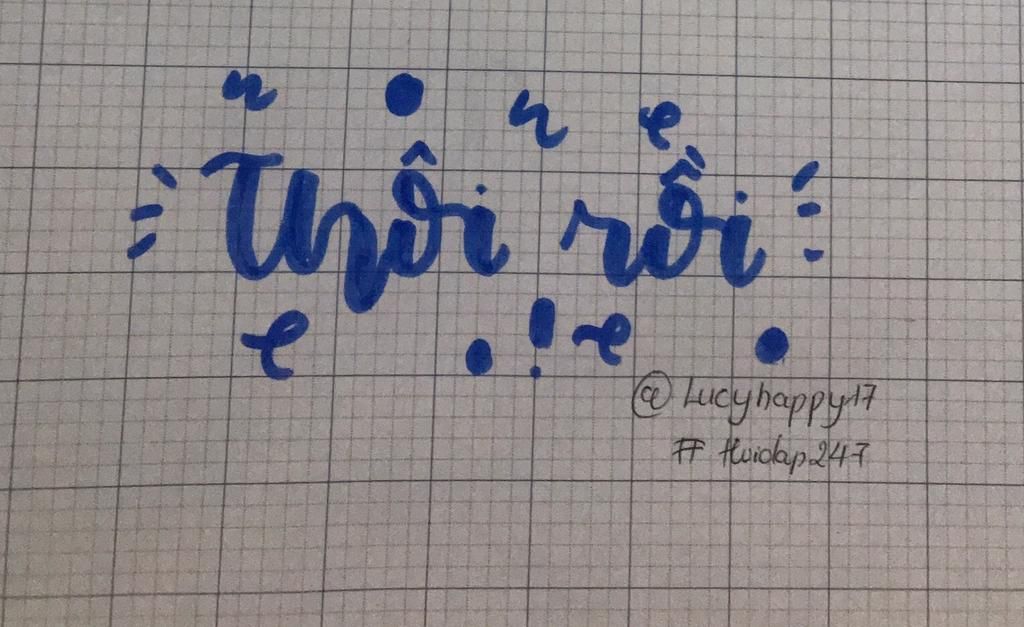 Thôi rồi
!
@Lucyhappy17
# thuidap247